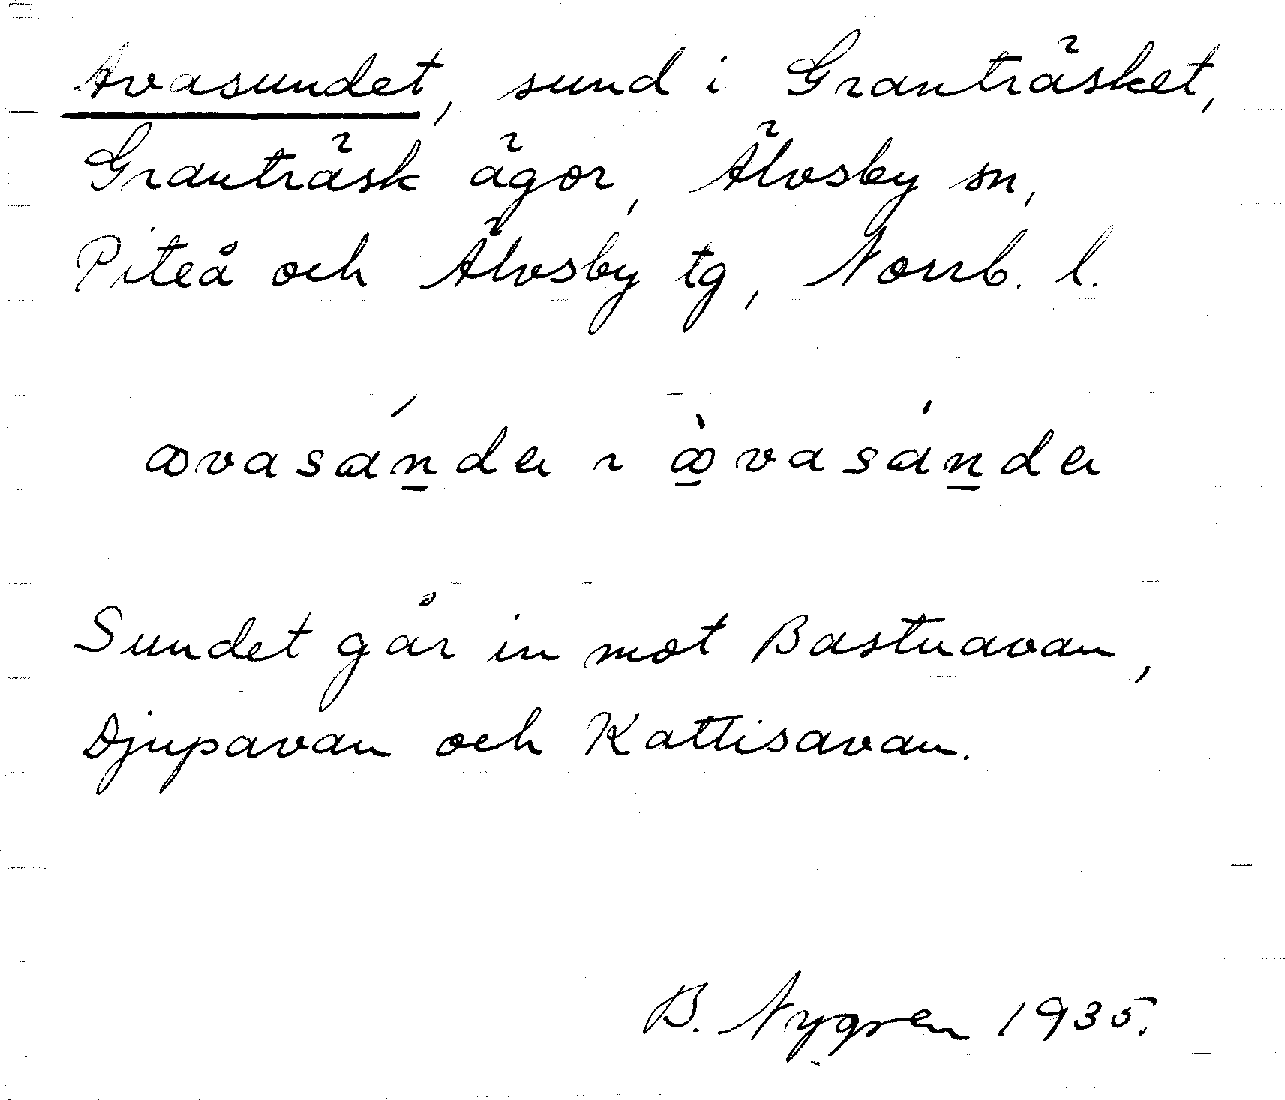 Avasundet, sund i Granträsket,
Granträsk ägor, Älvsby sn,
Piteå och Älvsby tg, Norrb. l.
Sundet går in mot Bastuavan,
Djupavan och Kattisavan.
B. Nygren 1935.